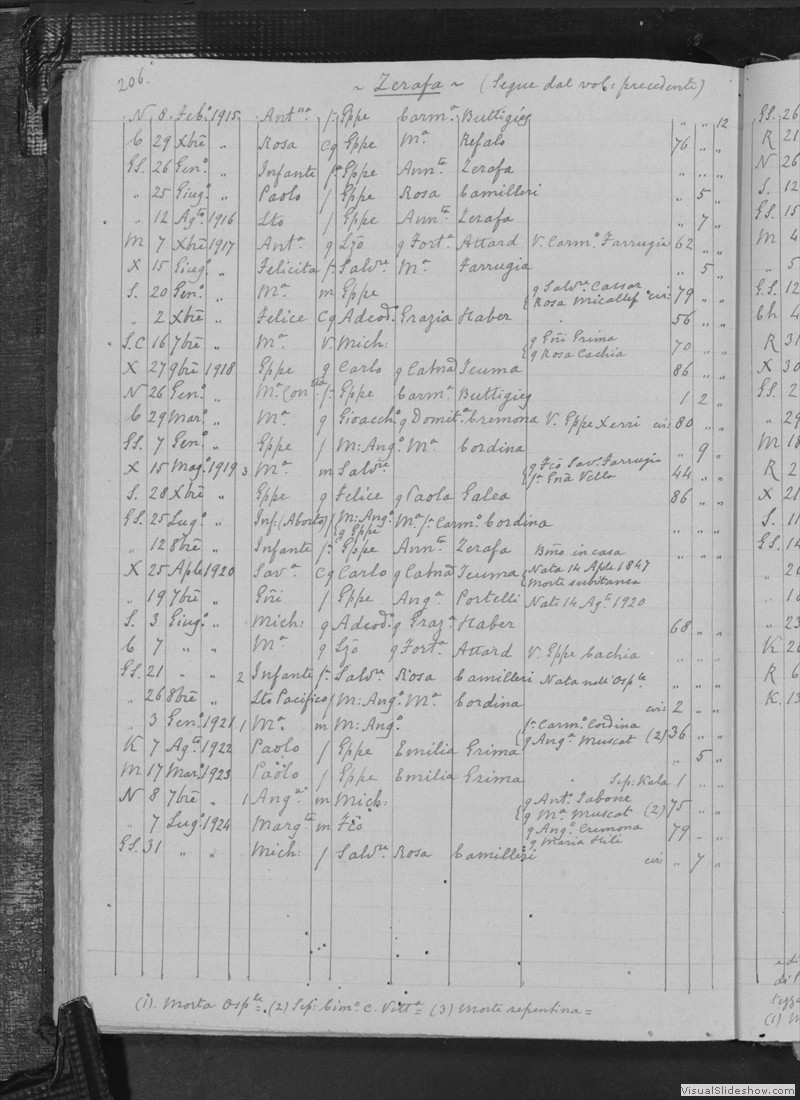 206.
~ Zerafa ~ (Segue dal vol: precedente)
N 8 Feb.º 1915 Ant.na f: Gppe Carm.a Buttigieg „ „ 12
C 29 Xbrē „ Rosa cg Gppe M.a Refalo 76 „ „
GS. 26 Gen.º „ Infante f: Gppe Ann.ta Zerafa „ „ „
„ 25 Giug.º „ Paolo f Gppe Rosa Camilleri „ 5 „
„ 12 Ag.to 1916 Lto f Gppe Ann.ta Zerafa „ 7 „
M 7 Xbrē 1917 Ant.a g Ljō g Fort.a Attard V. Carm.º Farrugia 62 „ „
X 15 Giug.º „ Felicita f: Salv.re M.a Farrugia „ 5 „
S. 20 Gen.º „ M.a m Gppe { g Salv.re Cassar
Rosa Micallef civ: 79 „ „
„ 2 Xbrē „ Felice cg Adeod.º Grazia Haber 56 „ „
S.C 16 7brē „ M.a v. Mich: { g Gñi Grima
g Rosa Cachia 70 „ „
X 27 9brē 1918 Gppe g Carlo g Catnā Teuma 86 „ „
N 26 Gen.º „ M.a Con f: Gppe Carm.a Buttigieg 1 2 „
C 29 Mar.º „ M.a g Gioacch.º g Domit.a Cremona V. Gppe Xerri civ: 80 „ „
GS. 7 Gen.º „ Gppe f M: Ang.º M.a Cordina „ 9 „
X 15 Mag.º 1919 3 M.a m Salv.re { g Fcō Sav. Farrugia
f: Gnā Vella 44 „ „
S. 28 Xbrē „ Gppe g Felice g Paola Galea 86 „ „
GS. 25 Lug.º „ Inf: (Aborto) f { M: Ang.º M.a f: Carm.º Cordina
g Gppe „ „ „
„ 12 8brē „ Infante f: Gppe Ann.ta Zerafa Bmō in casa „ „ „
X 25 Aple 1920 Sav.a cg Carlo g Catnā Teuma { Nata 14 Aple 1847
Morte subitanea
„ 19 7brē „ Gñi f Gppe Ang.a Portelli Nato 14 Ag.to 1920
S. 3 Giug.º „ Mich: g Adeod.º g Graz.a Haber 68 „ „
C 7 „ „ M.a g Ljō g Fort.a Attard V. Gppe Cachia „ „ „
GS. 21 „ „ 2 Infante f: Salv.re Rosa Camilleri Nata nell' Osp.le „ „ „
„ 26 8brē „ Lto Pacifico f M: Ang.º M.a Cordina civ: 2 „ „
„ 3 Gen.º 1921 1 M.a m M: Ang.º { f: Carm.º Cordina
g Ang.a Muscat (2) 36 „ „
K 7 Ag.to 1922 Paolo f Gppe Emilia Grima „ 5 „
M 17 Mar.º 1923 Paolo f Gppe Emilia Grima Sep: Kala 1 „ „
N 8 7brē „ 1 Ang.a m Mich: { g Ant.º Tabone
g M.a Muscat (2) 75 „ „
„ 7 Lug.º 1924 Marg.ta m Fcō { g Ang.º Cremona
g Maria Hili 79 „ „
GS. 31 „ „ Mich: f Salv.re Rosa Camilleri civ: „ 7 „
(1). Morta Osp.le = (2) Sep: Cim.º C. Vitt.a = (3) Morte repentina =
GS. 26
R 21
N 26
S. 12
GS. 15
M 4
„ 5
GS. 12
Ch 4
R 31
X 30
GS. 2
„ 29
M 18
R 2
X 21
S. 11
GS. 14
„ 20
„ 10
„ 23
K 26
R 6
K. 13
(1) M
VisualSlideshow.com